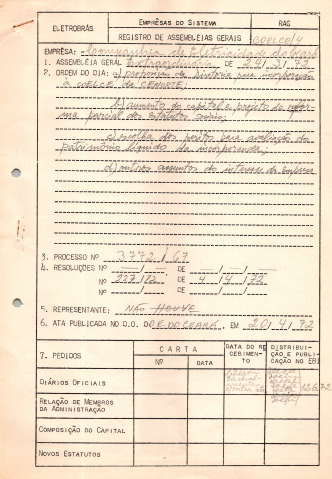 ELETROBRÁS
EMPRÊSAS DO SISTEMA
RAG
REGISTRO DE ASSEMBLÉIAS GERAIS
COELCE/4
EMPRÊSA: Companhia de Eletricidade do Ceará
1. ASSEMBLÉIA GERAL Extraordinária DE 24/3/72
2. ORDEM DO DIA: a) proposta da Diretoria para incorporação
à COELCE da
b) aumento do capital e projeto de reforma
parcial dos Estatutos Sociais;
c) escolha dos peritos para avaliação do
patrimônio líquido da incorporanda;
d) outros assuntos do interesse da Empresa
3. PROCESSO Nº 3772/67
4. RESOLUÇÕES Nº / , DE / /
Nº 227/72, DE 4/4/72
Nº / , DE / /
5. REPRESENTANTE: NÃO HOUVE
6. ATA PUBLICADA NO D.O. DO E. DO CEARÁ, EM 20/4/72
7. PEDIDOS
CARTA
Nº
DATA
DATA DO RECEBIMENTO
DISTRIBUIÇÃO E PUBLICAÇÃO NO EBI
DIÁRIOS OFICIAIS
RELAÇÃO DE MEMBROS
DA ADMINISTRAÇÃO
COMPOSIÇÃO DO CAPITAL
NOVOS ESTATUTOS